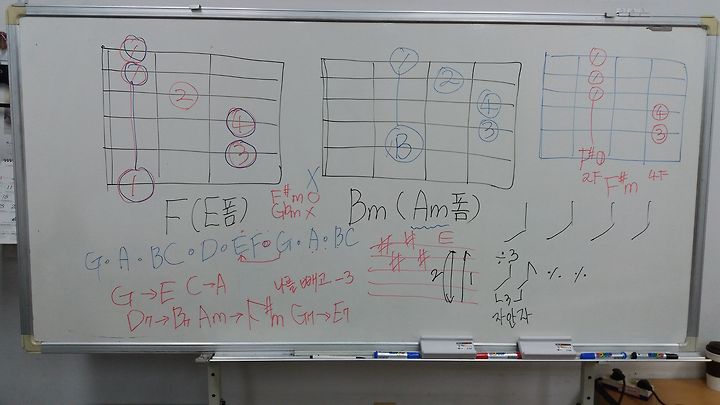 1
1
2
4
3
1
F(E폼)
1
2
4
3
B
Bm(Am폼)
1
1
1
4
3
F#
2F 4F
F#m
X
F#m O
Gbm X
G·A·BC·D·EF·G·A·BC
G→E C→A
나를 빼고 -3
D7→B7 Am→F#m G7→E7
# # E
# #
2 1
÷3
% %
자안자